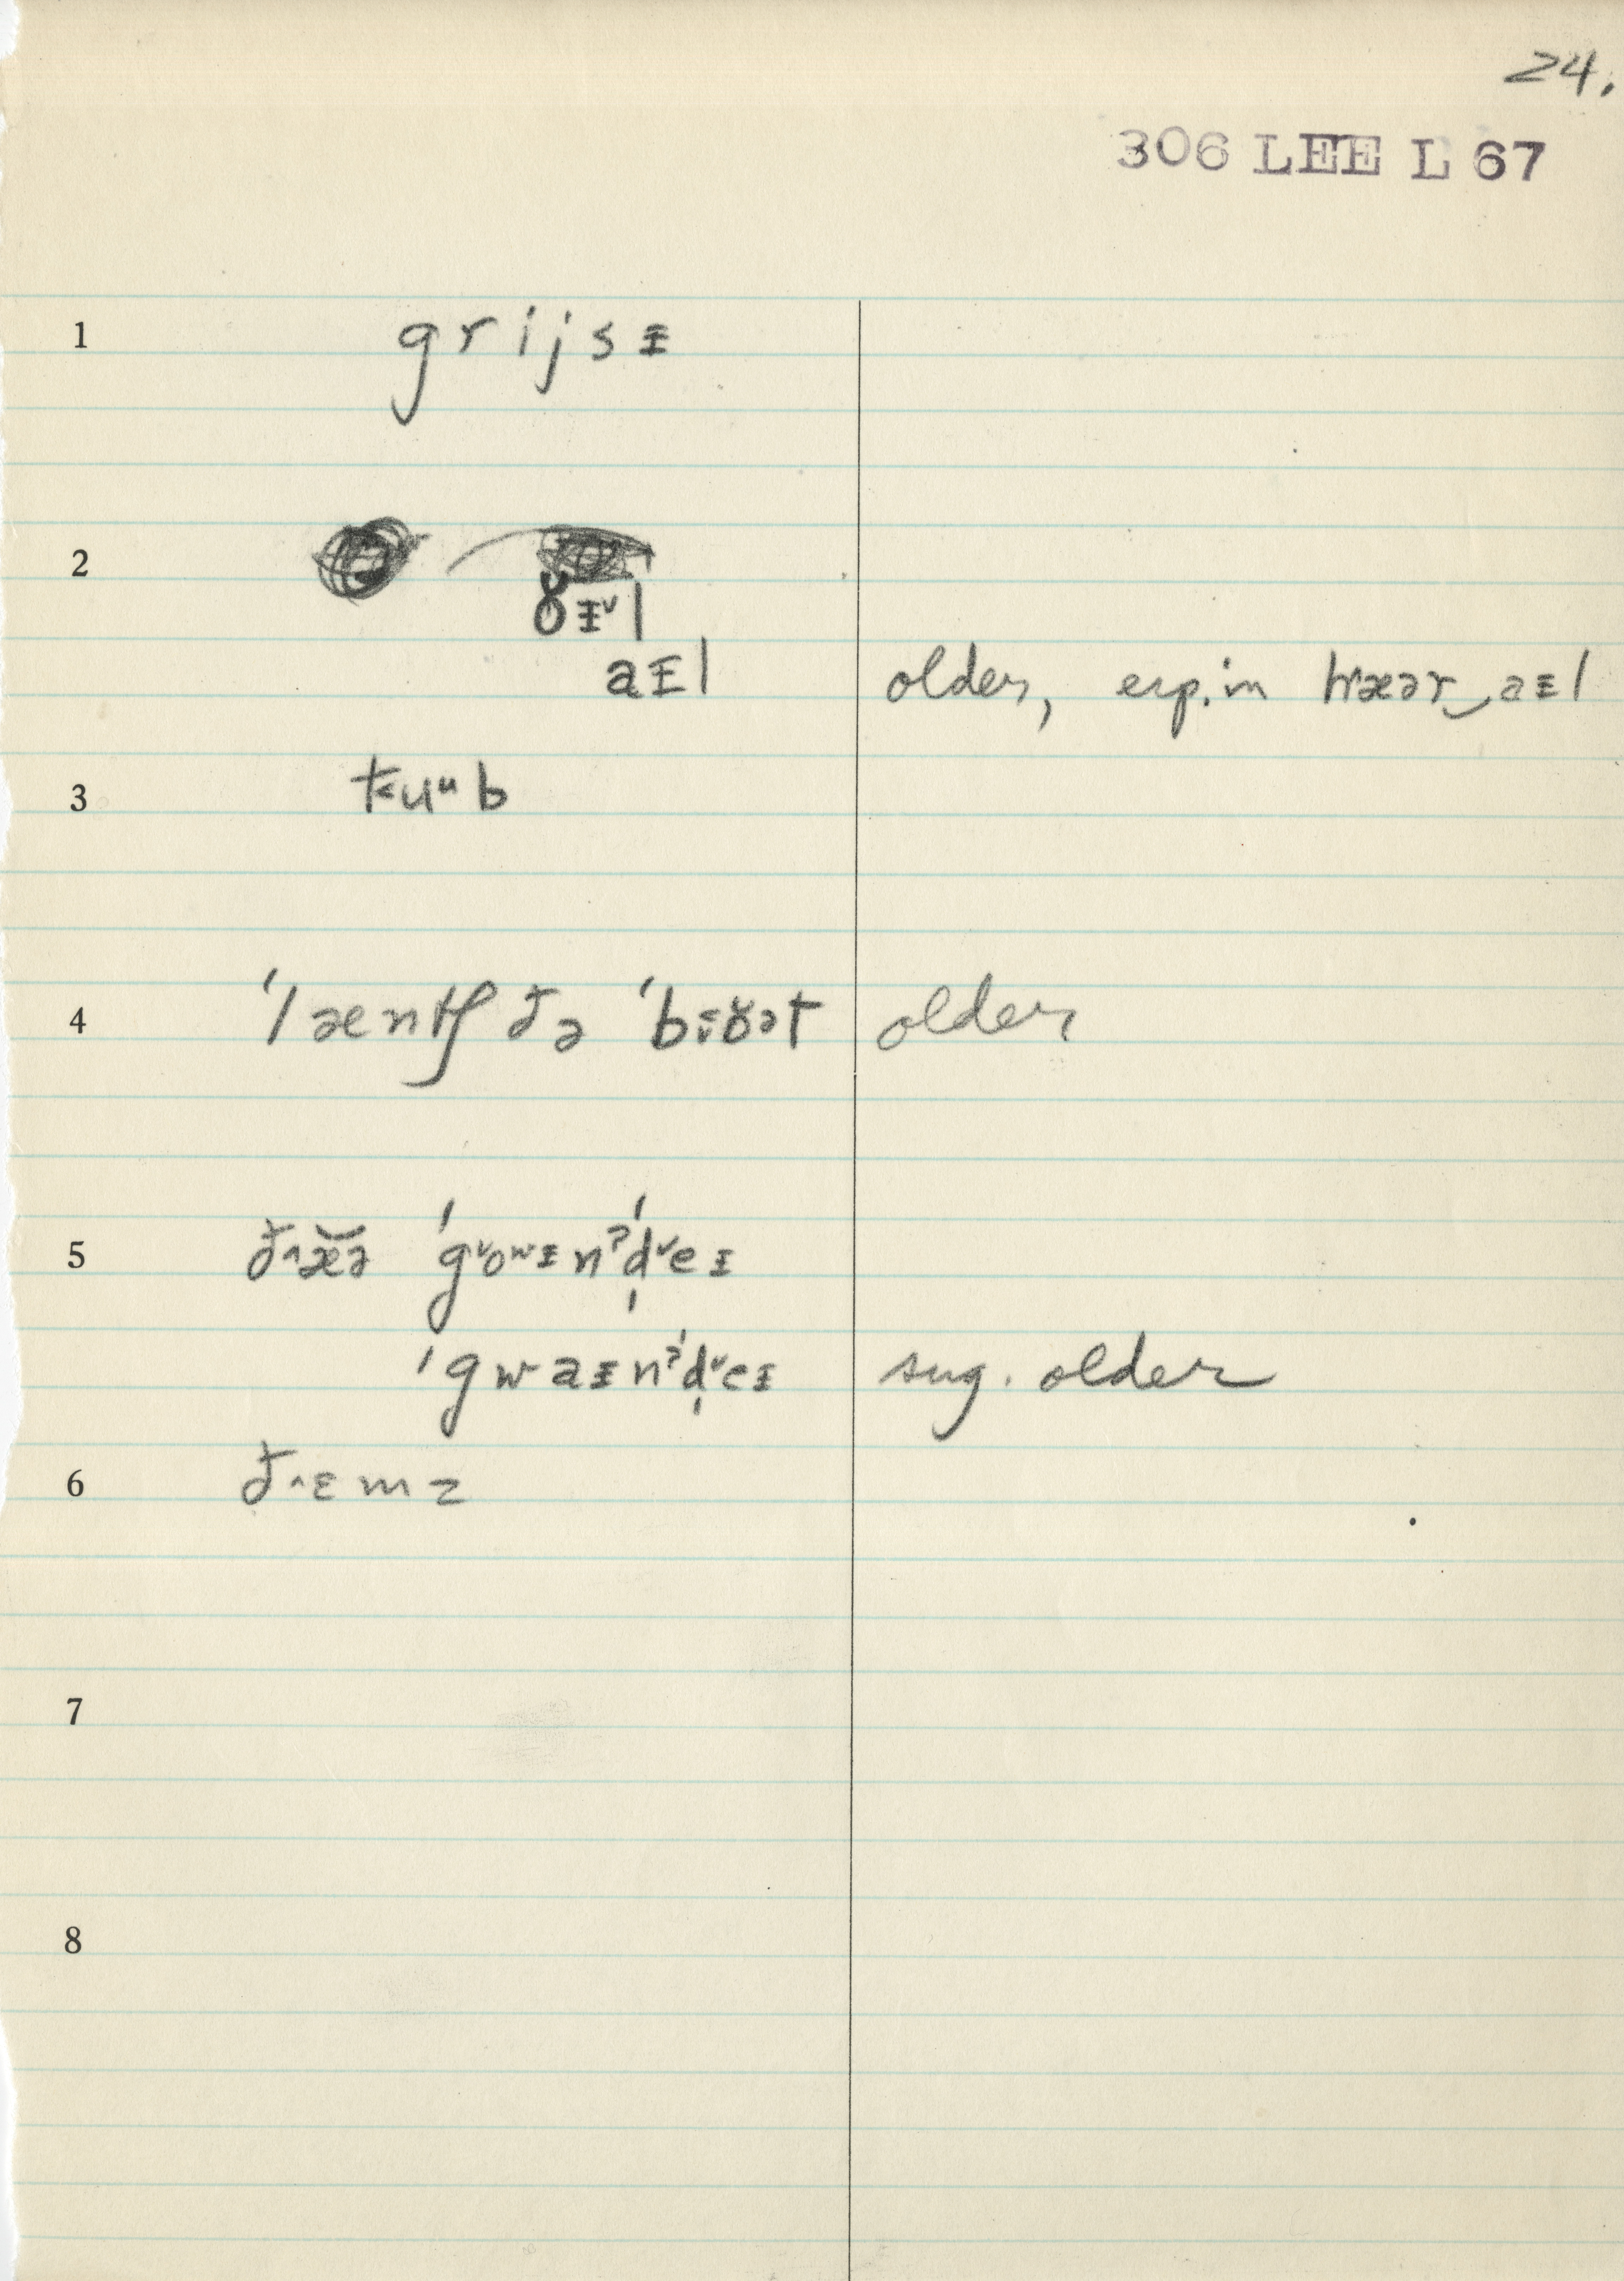 24.
306 LEE L 67
1 g r i j s ɪ
2
ɤɪ˅l
aɪl older, esp. in hæər‿aɪl
3 t˂uᵘb
4 ˈlæntʃ ðə ˈbɪɤət older
5 ð˄æ̆ə ˈg˅oʷɪnʔˈd̩˅eɪ
ˈgwaɪnʔˈd̩˅eɪ sug. older
6 ð˄ɛmz
7
8